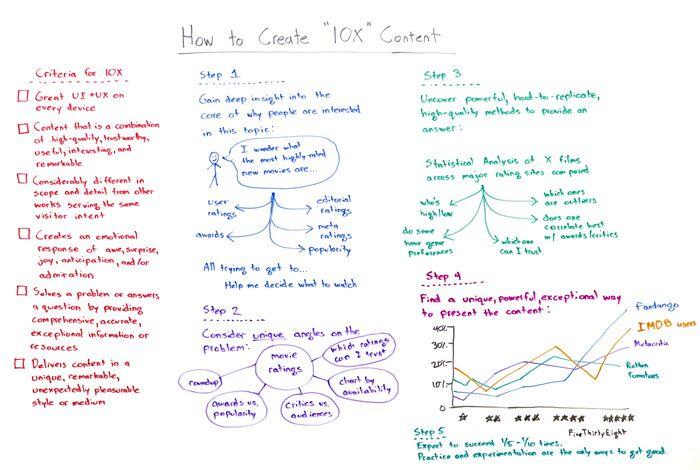 How to Create "10X" Content
Criteria for 10X
Great UI + UX on
every device
Content that is a combination
of high-quality, trustworthy,
useful, interesting, and
remarkable
Considerably different in
scope and detail from other
works serving the same
visitor intent
Creates an emotional
response of awe, surprise,
joy, anticipation, and/or
admiration
Solves a problem or answers
a question by providing
comprehensive, accurate,
exceptional information or
resources
Delivers content in a
unique, remarkable,
unexpectedly pleasurable
style or medium
Step 1
Gain deep insight into the
core of why people are interested
in this topic:
I wonder what
the most highly-rated
new movies are...
user
ratings
awards
editorial
ratings
meta
ratings
popularity
All trying to get to...
Help me decide what to watch
Step 2
Consider unique angles on the
problem:
movie
ratings
which ratings
can I trust
roundup
chart by
availability
awards vs.
popularity
critics vs.
audiences
Step 3
Uncover powerful, hard-to-replicate,
high-quality methods to provide an
answer:
Statistical Analysis of X films
across major rating sites compared
who's
high/low
do some
have genre
preferences
which one
can I trust
does one
correlate best
w/ awards/critics
which ones
are outliers
Step 4
Find a unique, powerful, exceptional way
to present the content:
40%
30%
20%
10%
0%
Fandango
IMDB users
Metacritic
Rotten
Tomatoes
FiveThirtyEight
Step 5
Expect to succeed 1/5 - 1/10 times.
Practice and experimentation are the only ways to get good.